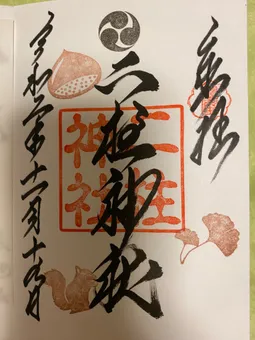 奉拝
二柱神社
二柱
神社
令和二年十一月